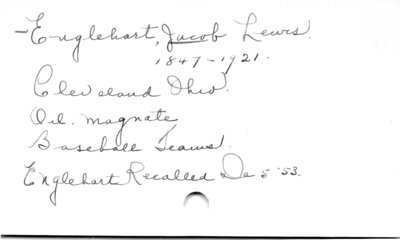 -Englehart, Jacob Lewis.
1847-1921.
Cleveland Ohio.
Oil. magnate
Baseball Teams.
Englehart Recalled De 5 '53.